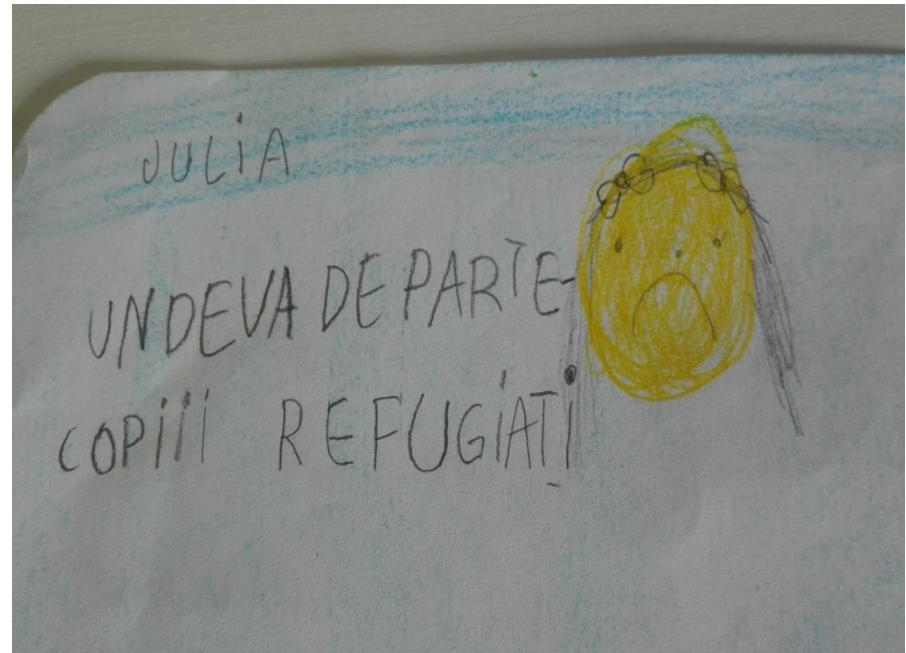 JULiA
UNDEVA DEPARTE-
COPiii REFUGiAȚi